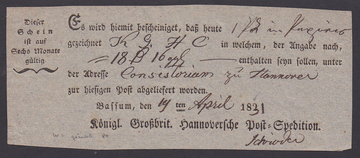 Dieser
Schein
ist auf
Sechs Monate
gültig
Es wird hiemit bescheiniget, daß heute 1 P in Papier
gezeichnet K G H C in welchem, der Angabe nach,
18 16 enthalten seyn sollen, unter
der Adresse Consistorium zu Hannover
zur hiesigen Post abgeliefert worden.
Bassum, den 19ten April 1831
Königl. Großbrit. Hannoversche Post-Spedition.
Schröder